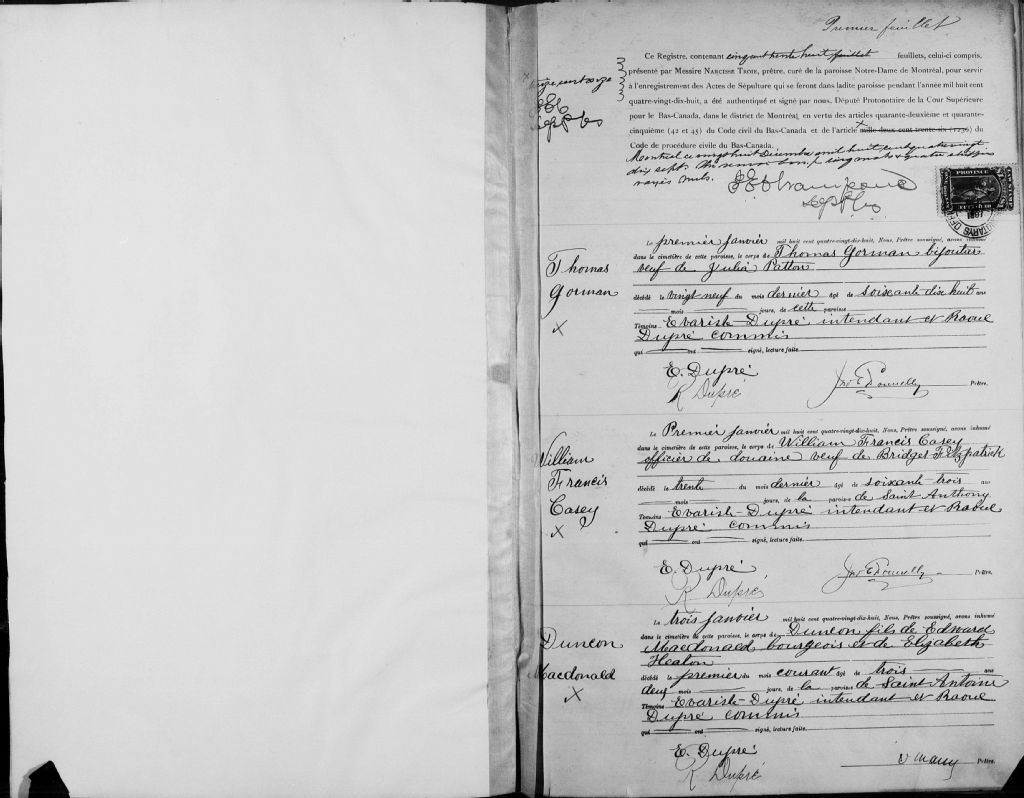 Premier feuillet
Ce Registre, contenant cinq cent trente huit feuillets feuillets, celui-ci compris,
présenté par Messire Narcisse Troie, prêtre, curé de la paroisse Notre-Dame de Montréal, pour servir
à l'enregistrement des Actes de Sépulture qui se feront dans ladite paroisse pendant l'année mil huit cent
quatre-vingt-dix-huit, a été authentiqué et signé par nous, Député Protonotaire de la Cour Supérieure
pour le Bas-Canada, dans le district de Montréal, en vertu des articles quarante-deuxième et quarante-
cinquième (42 et 45) du Code civil du Bas-Canada et de l'article mille deux cent trente-six (1236) du
Code de procédure civile du Bas-Canada.
Montréal ce vingt huit Décembre mil huit cent quatre vingt
dix sept.
rayés nuls.
PROVINCE
1897
Thomas
Gorman
X
Le premier janvier mil huit cent quatre-vingt-dix-huit, Nous, Prêtre soussigné, avons inhumé
dans le cimetière de cette paroisse, le corps de Thomas Gorman bijoutier
veuf de Julia Patton
décédé le vingt neuf du mois dernier âgé de soixante dix huit ans
mois jours, de cette paroisse
Témoins Evariste Dupré intendant et Raoul
Dupré commis
qui ont signé, lecture faite.
E. Dupré
R Dupré
Jno E Donnelly Prêtre.
William
Francis
Casey
X
Le Premier janvier mil huit cent quatre-vingt-dix-huit, Nous, Prêtre soussigné, avons inhumé
dans le cimetière de cette paroisse, le corps de William Francis Casey
officier de douaine veuf de Bridget Fitzpatrick
décédé le trente du mois dernier âgé de soixante trois ans
mois jours, de la paroisse de Saint Anthony
Témoins Evariste Dupré intendant et Raoul
Dupré commis
qui ont signé, lecture faite.
E. Dupré
R Dupré
Jno E Donnelly Prêtre.
Duncon
Macdonald
X
Le trois janvier mil huit cent quatre-vingt-dix-huit, Nous, Prêtre soussigné, avons inhumé
dans le cimetière de cette paroisse, le corps de Duncon fils de Edward
Macdonald bourgeois et de Elizabeth
Heaton
décédé le premier du mois courant âgé de trois ans
deux mois jours, de la paroisse de Saint Antoine
Témoins Evariste Dupré intendant et Raoul
Dupré commis
qui ont signé, lecture faite.
E. Dupré
R Dupré
Prêtre.